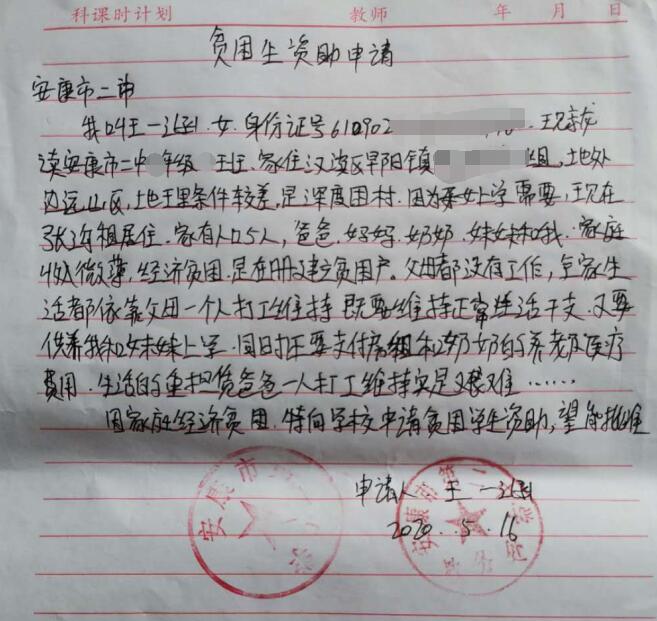 科课时计划 教师 年 月 日
贫困生资助申请
安康市二中
我叫王一,女,身份证号610902 现就
读安康市二中 年级 班,家住汉滨区早阳镇 组,土地处
边远山区,地理条件较差,是深度困村.因为子女上学需要,现在
张 租居住.家有人口5人,爸爸.妈妈.奶奶.妹妹和我.家庭
收入微薄,经济贫困.是在册建贫困户。父母都没有工作,全家生
活都依靠父母一个人打工维持 既要维持正常生活开支.又要
供养我和妹妹上学.同时还要支付房租和奶奶的养老及医疗
费用.生活的重担凭爸爸一人打工维持实是艰难……
因家庭经济贫困.特向学校申请贫困学生资助,望能批准
申请人 王一
2020.5.16
安康市
安康市第二